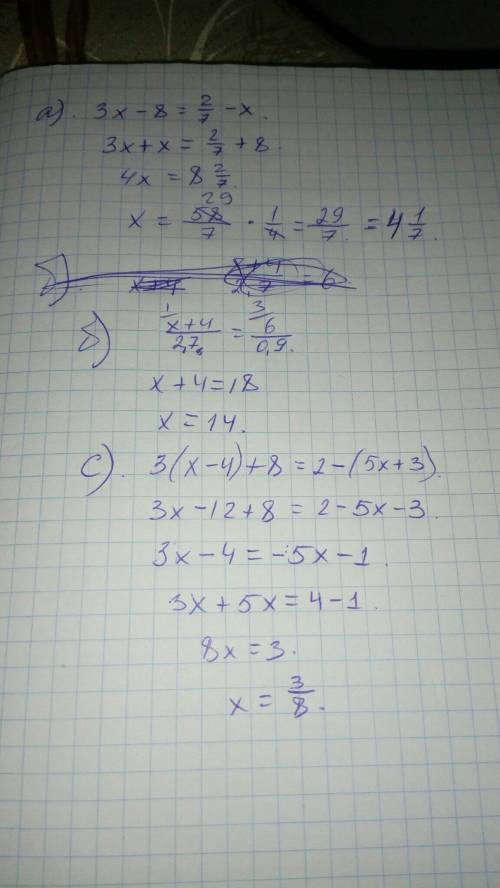 а). 3x - 8 = 2/7 - x.
3x + x = 2/7 + 8.
4x = 8 2/7.
29
x = 58/7 · 1/4 = 29/7 = 4 1/7.
x+4 x+4/2,7 = 6.
1 3
б) x+4/2,7 = 6/0,9.
x + 4 = 18
x = 14.
c). 3(x - 4) + 8 = 2 - (5x + 3).
3x - 12 + 8 = 2 - 5x - 3.
3x - 4 = -5x - 1.
3x + 5x = 4 - 1.
8x = 3.
x = 3/8.